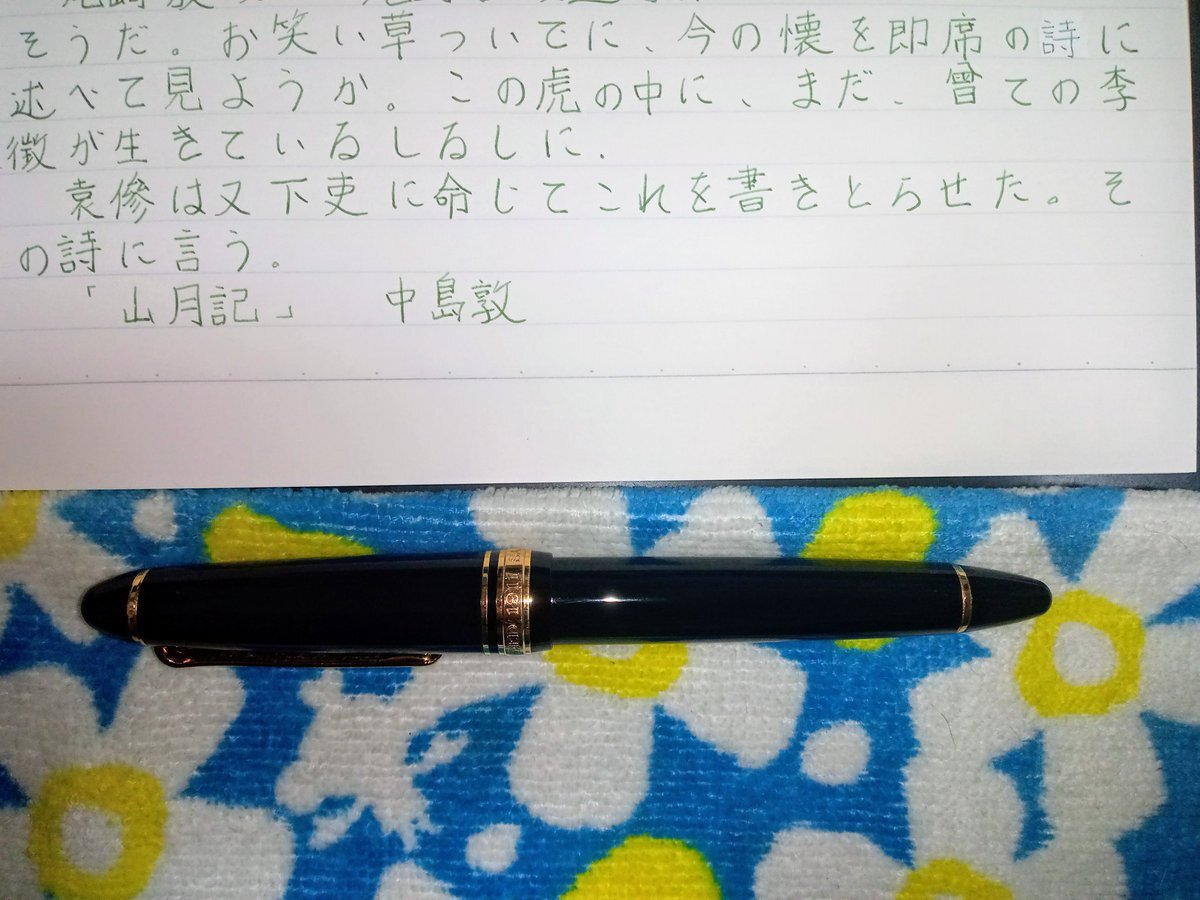 そうだ。お笑い草ついでに、今の懐を即席の詩に
述べて見ようか。この虎の中に、まだ、曾ての李
徴が生きているしるしに.
袁傪は又下吏に命じてこれを書きとらせた。そ
の詩に言う。
「山月記」 中島敦